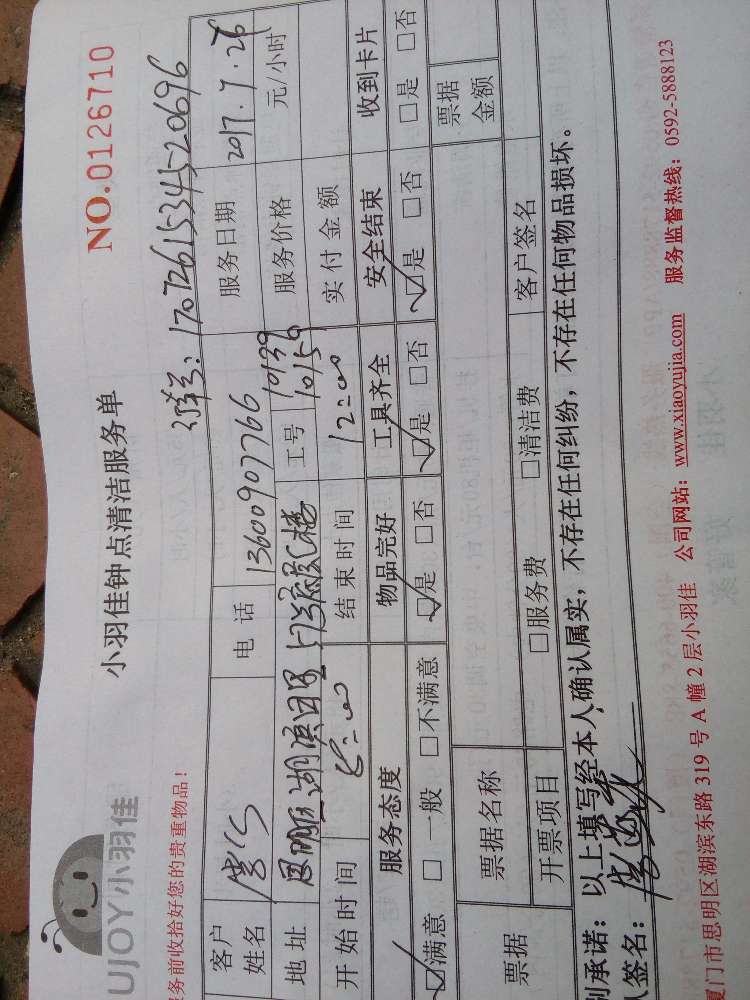 UJOY小羽佳
小羽佳钟点清洁服务单
NO.0126710
务前收拾好您的贵重物品!
客户姓名 电话 13600907766 服务日期 2017.7.26
地址 工号 10139 10159 服务价格 元/小时
开始时间 8:00 结束时间 12:00 实付金额
服务态度 物品完好 工具齐全 安全结束 收到卡片
☑满意 □一般 □不满意 ☑是 □否 ☑是 □否 ☑是 □否 □是 □否
票据 票据名称 票据金额
开票项目 □服务费 □清洁费 客户签名
别承诺：以上填写经本人确认属实，不存在任何纠纷，不存在任何物品损坏。
签名：
厦门市思明区湖滨东路319号A幢2层小羽佳 公司网站：www.xiaoyujia.com 服务监督热线：0592-5888123